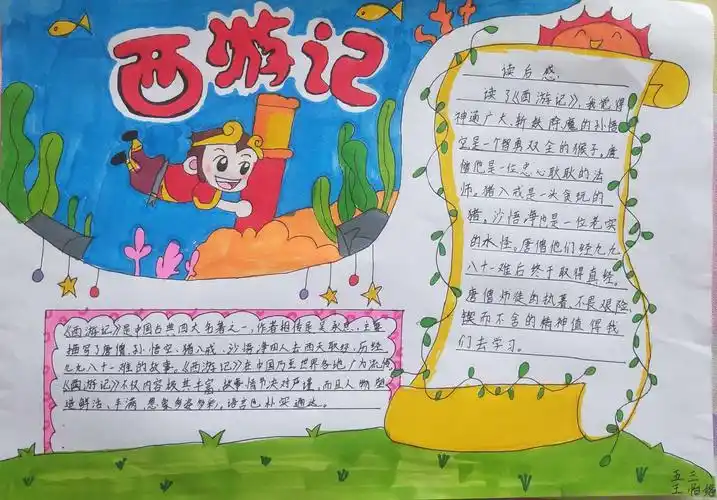 西游记
读后感.
读了《西游记》,我觉得
神通广大、斩妖降魔的孙悟
空是一个智勇双全的猴子,唐
僧他是一位忠心耿耿的法
师,猪八戒是一头贪玩的
猪,沙悟净也是一位老实
的水怪,唐僧他们经九九
八十一难后终于取得真经。
唐僧师徒的执著、不畏艰险、
锲而不舍的精神值得我
们去学习。
《西游记》是中国古典四大名著之一,作者相传是吴承恩,主要
描写了唐僧、孙悟空、猪八戒、沙悟净四人去西天取经,历经
九九八十一难的故事。《西游记》在中国乃至世界各地广为流传
《西游记》不仅内容极其丰富,故事情节
而且人物塑
造鲜活、丰满,想象多姿多彩,语言也朴实通达。
五三
王